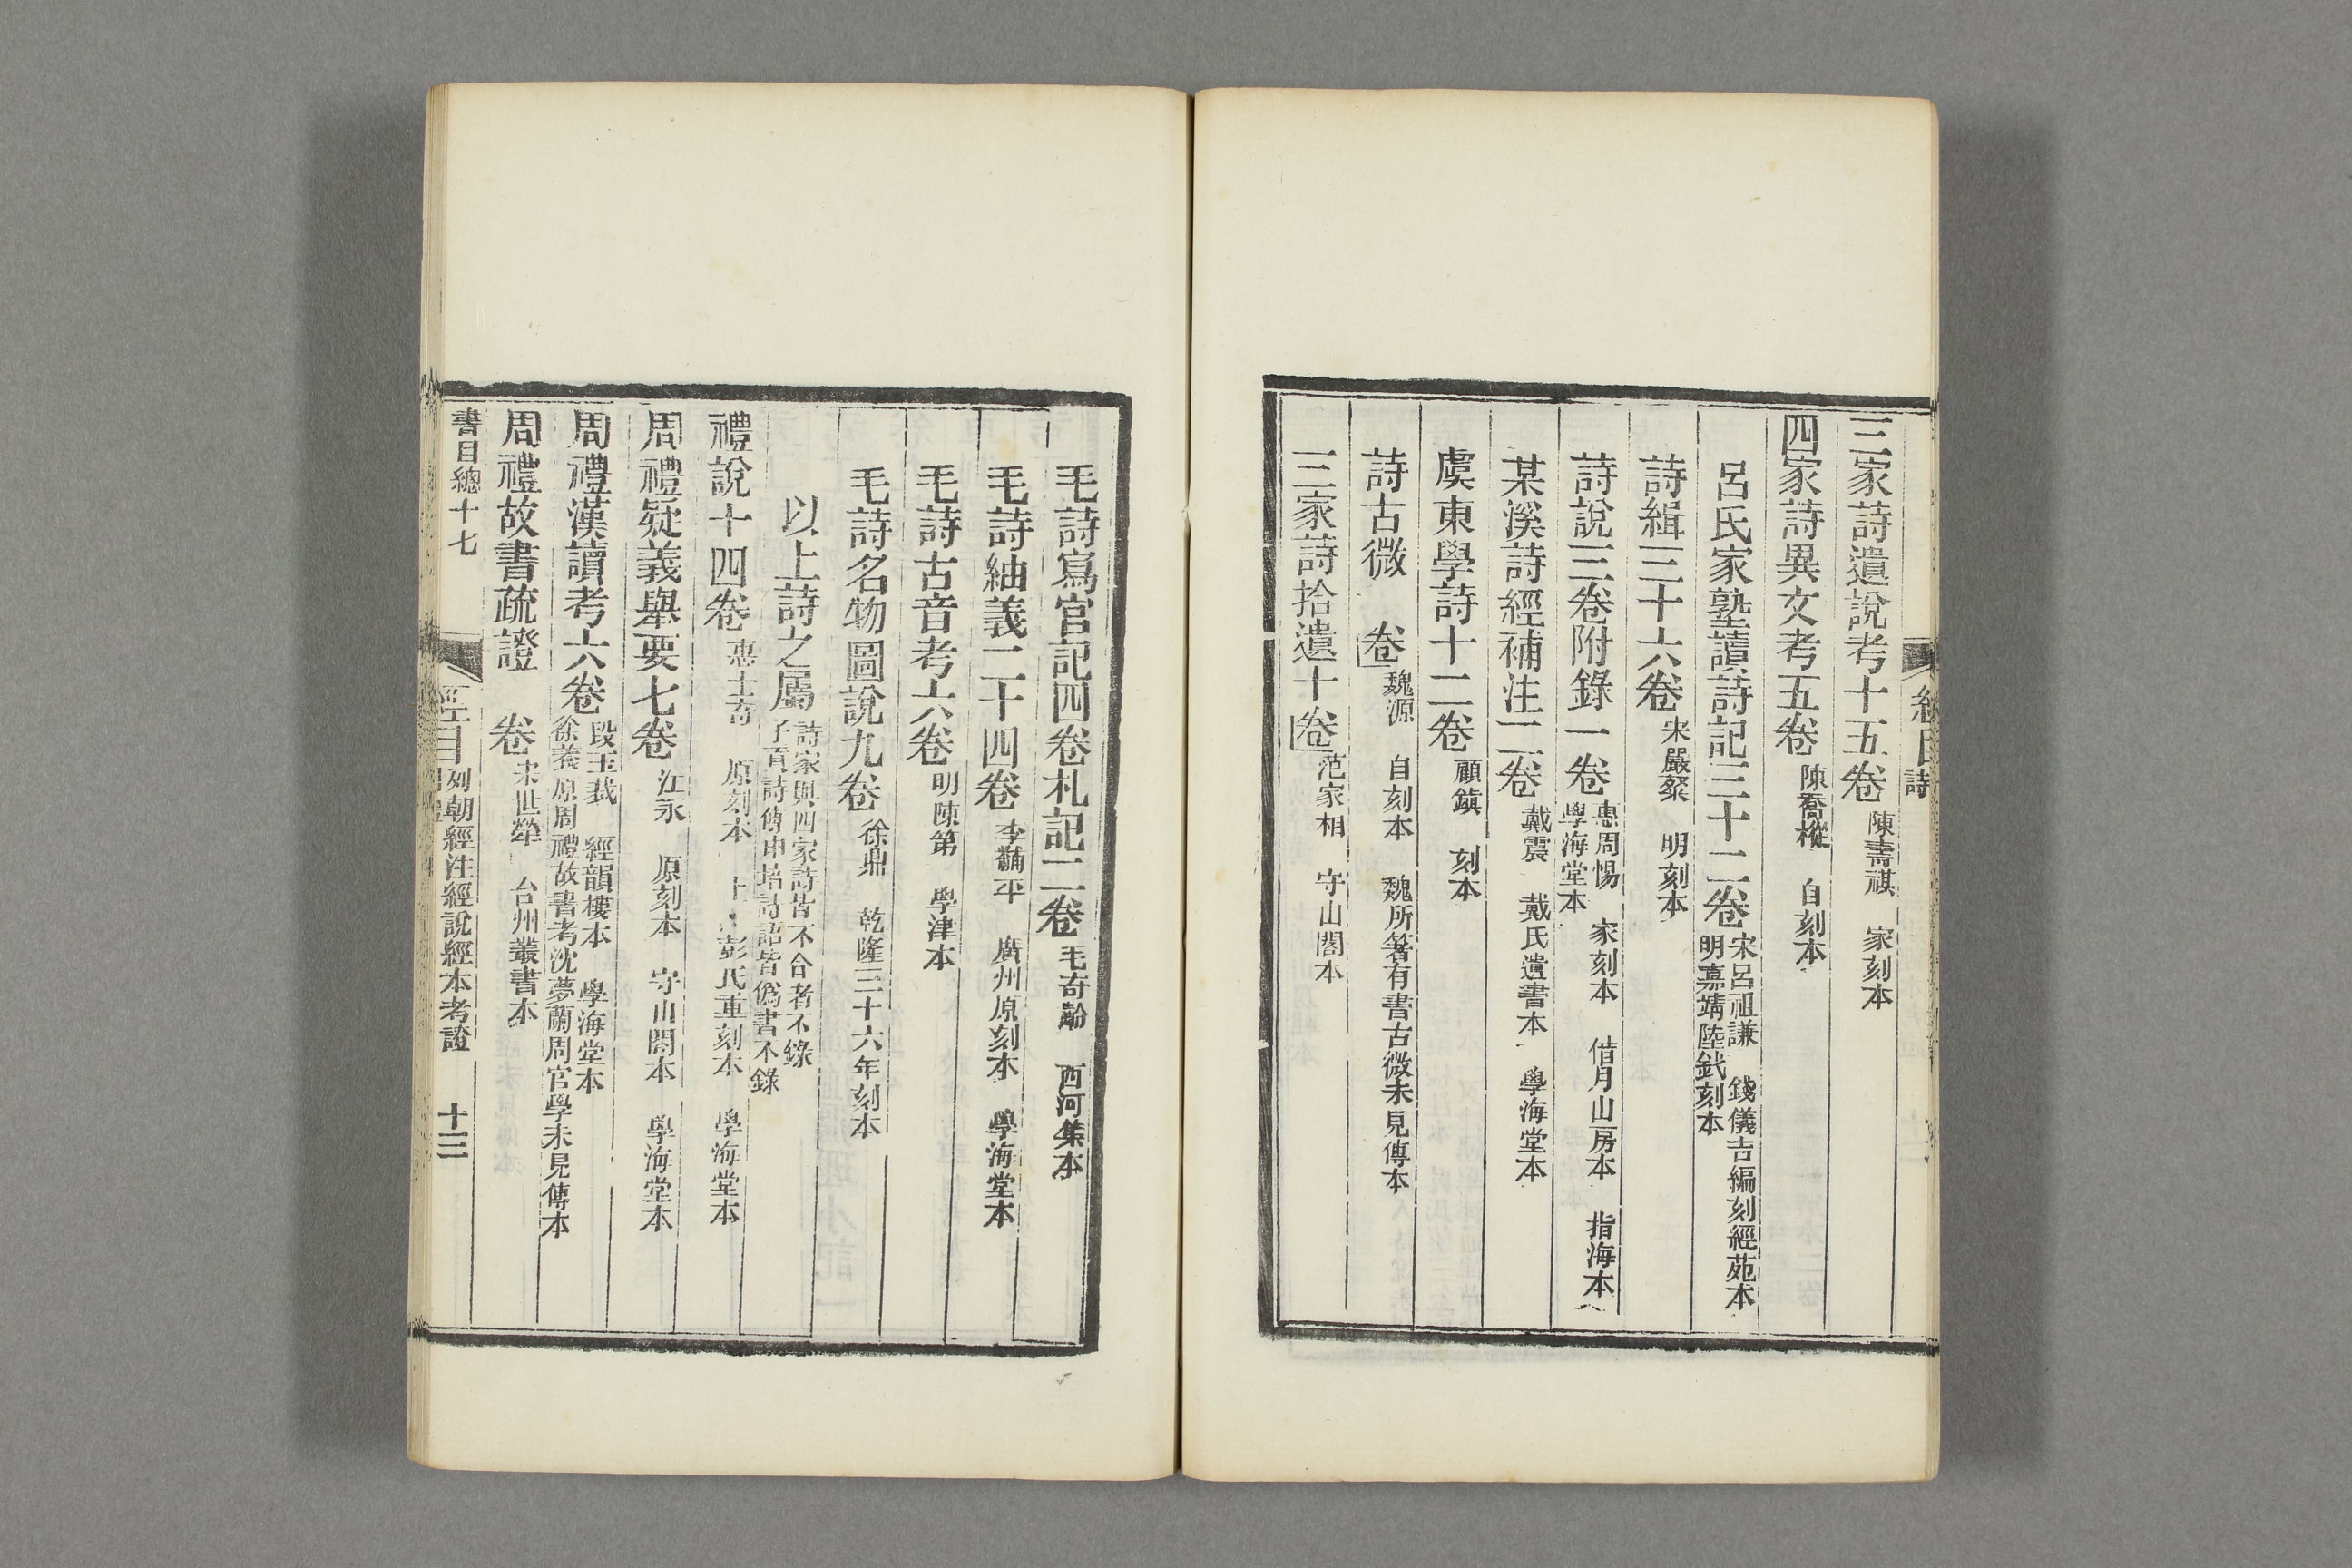 詩
三家詩遺說考十五卷 陳壽祺 家刻本
四家詩異文考五卷 陳喬樅 自刻本
呂氏家塾讀詩記三十二卷 宋呂祖謙 錢儀吉編刻經苑本
明嘉靖陸釴刻本
詩緝三十六卷 宋嚴粲 明刻本
詩說三卷附錄一卷 惠周惕 家刻本 借月山房本 指海本
學海堂本
某溪詩經補注二卷 戴震 戴氏遺書本 學海堂本
虞東學詩十二卷 顧鎮 刻本
詩古微 卷 魏源 自刻本 魏所箸有書古微未見傳本
三家詩拾遺十卷 范家相 守山閣本
毛詩寫官記四卷札記二卷 毛奇齡 西河集本
毛詩紬義二十四卷 李黼平 廣州原刻本 學海堂本
毛詩古音考六卷 明陳第 學津本
毛詩名物圖說九卷 徐鼎 乾隆三十六年刻本
以上詩之屬 詩家與四家詩皆不合者不錄
子貢詩傳申培詩說皆僞書不錄
禮說十四卷 惠士奇 原刻本 彭氏重刻本 學海堂本
周禮疑義舉要七卷 江永 原刻本 守山閣本 學海堂本
周禮漢讀考六卷 段玉裁 經韻樓本 學海堂本
徐養原周禮故書考沈夢蘭周官學未見傳本
周禮故書疏證 卷 宋世犖 台州叢書本
書目總十七 經目 列朝經注經說經本考證 十三